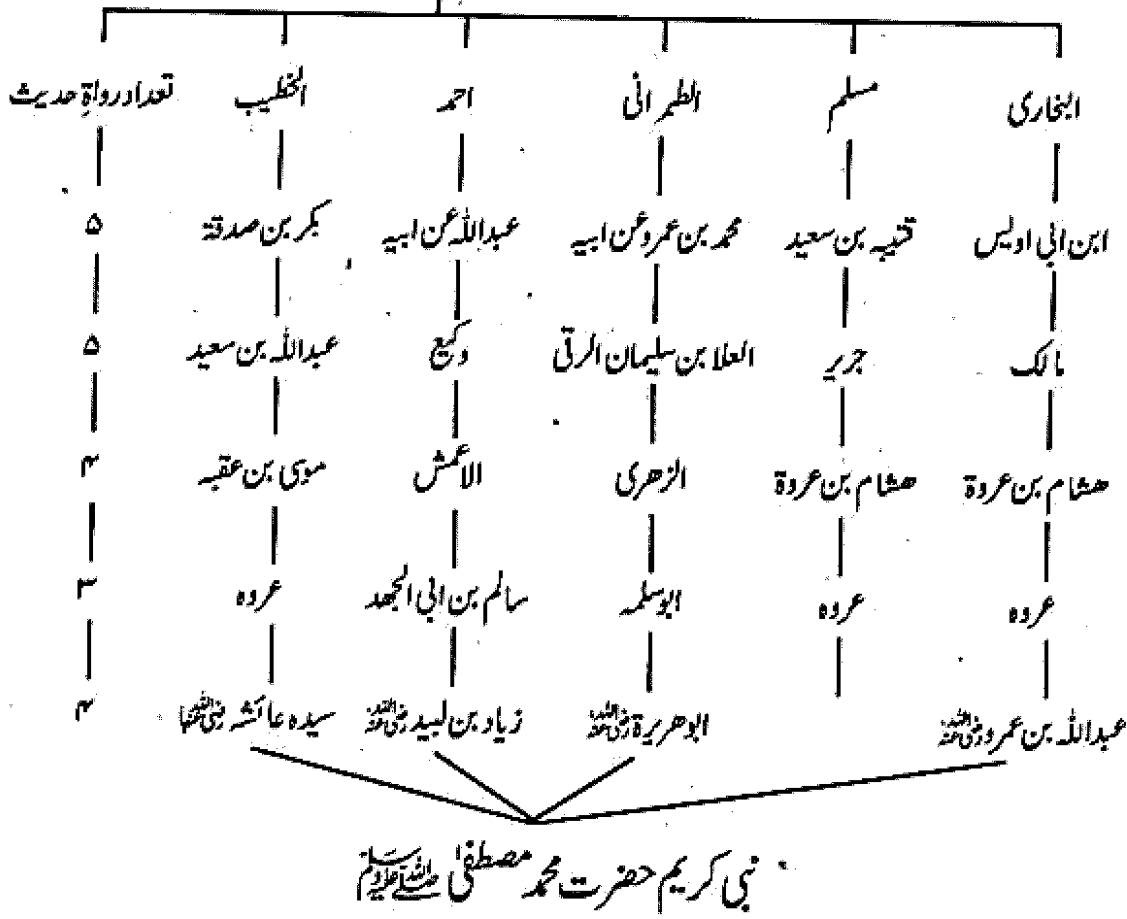 البخاری مسلم الطبرانی احمد الخطیب تعداد رواۃِ حدیث
ابن ابی اویس قتیبہ بن سعید محمد بن عمرو عن ابیہ عبداللہ عن ابیہ بکر بن صدقۃ ۵
مالک جریر العلا بن سلیمان الرقی وکیع عبداللہ بن سعید ۵
ھشام بن عروۃ ھشام بن عروۃ الزھری الاعمش موسی بن عقبہ ۴
عروہ عروہ ابوسلمہ سالم بن ابی الجھد عروہ ۳
عبداللہ بن عمرو رضی اللہ عنہ ابوھریرۃ رضی اللہ عنہ زیاد بن لبید رضی اللہ عنہ سیدہ عائشہ رضی اللہ عنہا ۴
نبی کریم حضرت محمد مصطفیٰ صلی اللہ علیہ وسلم